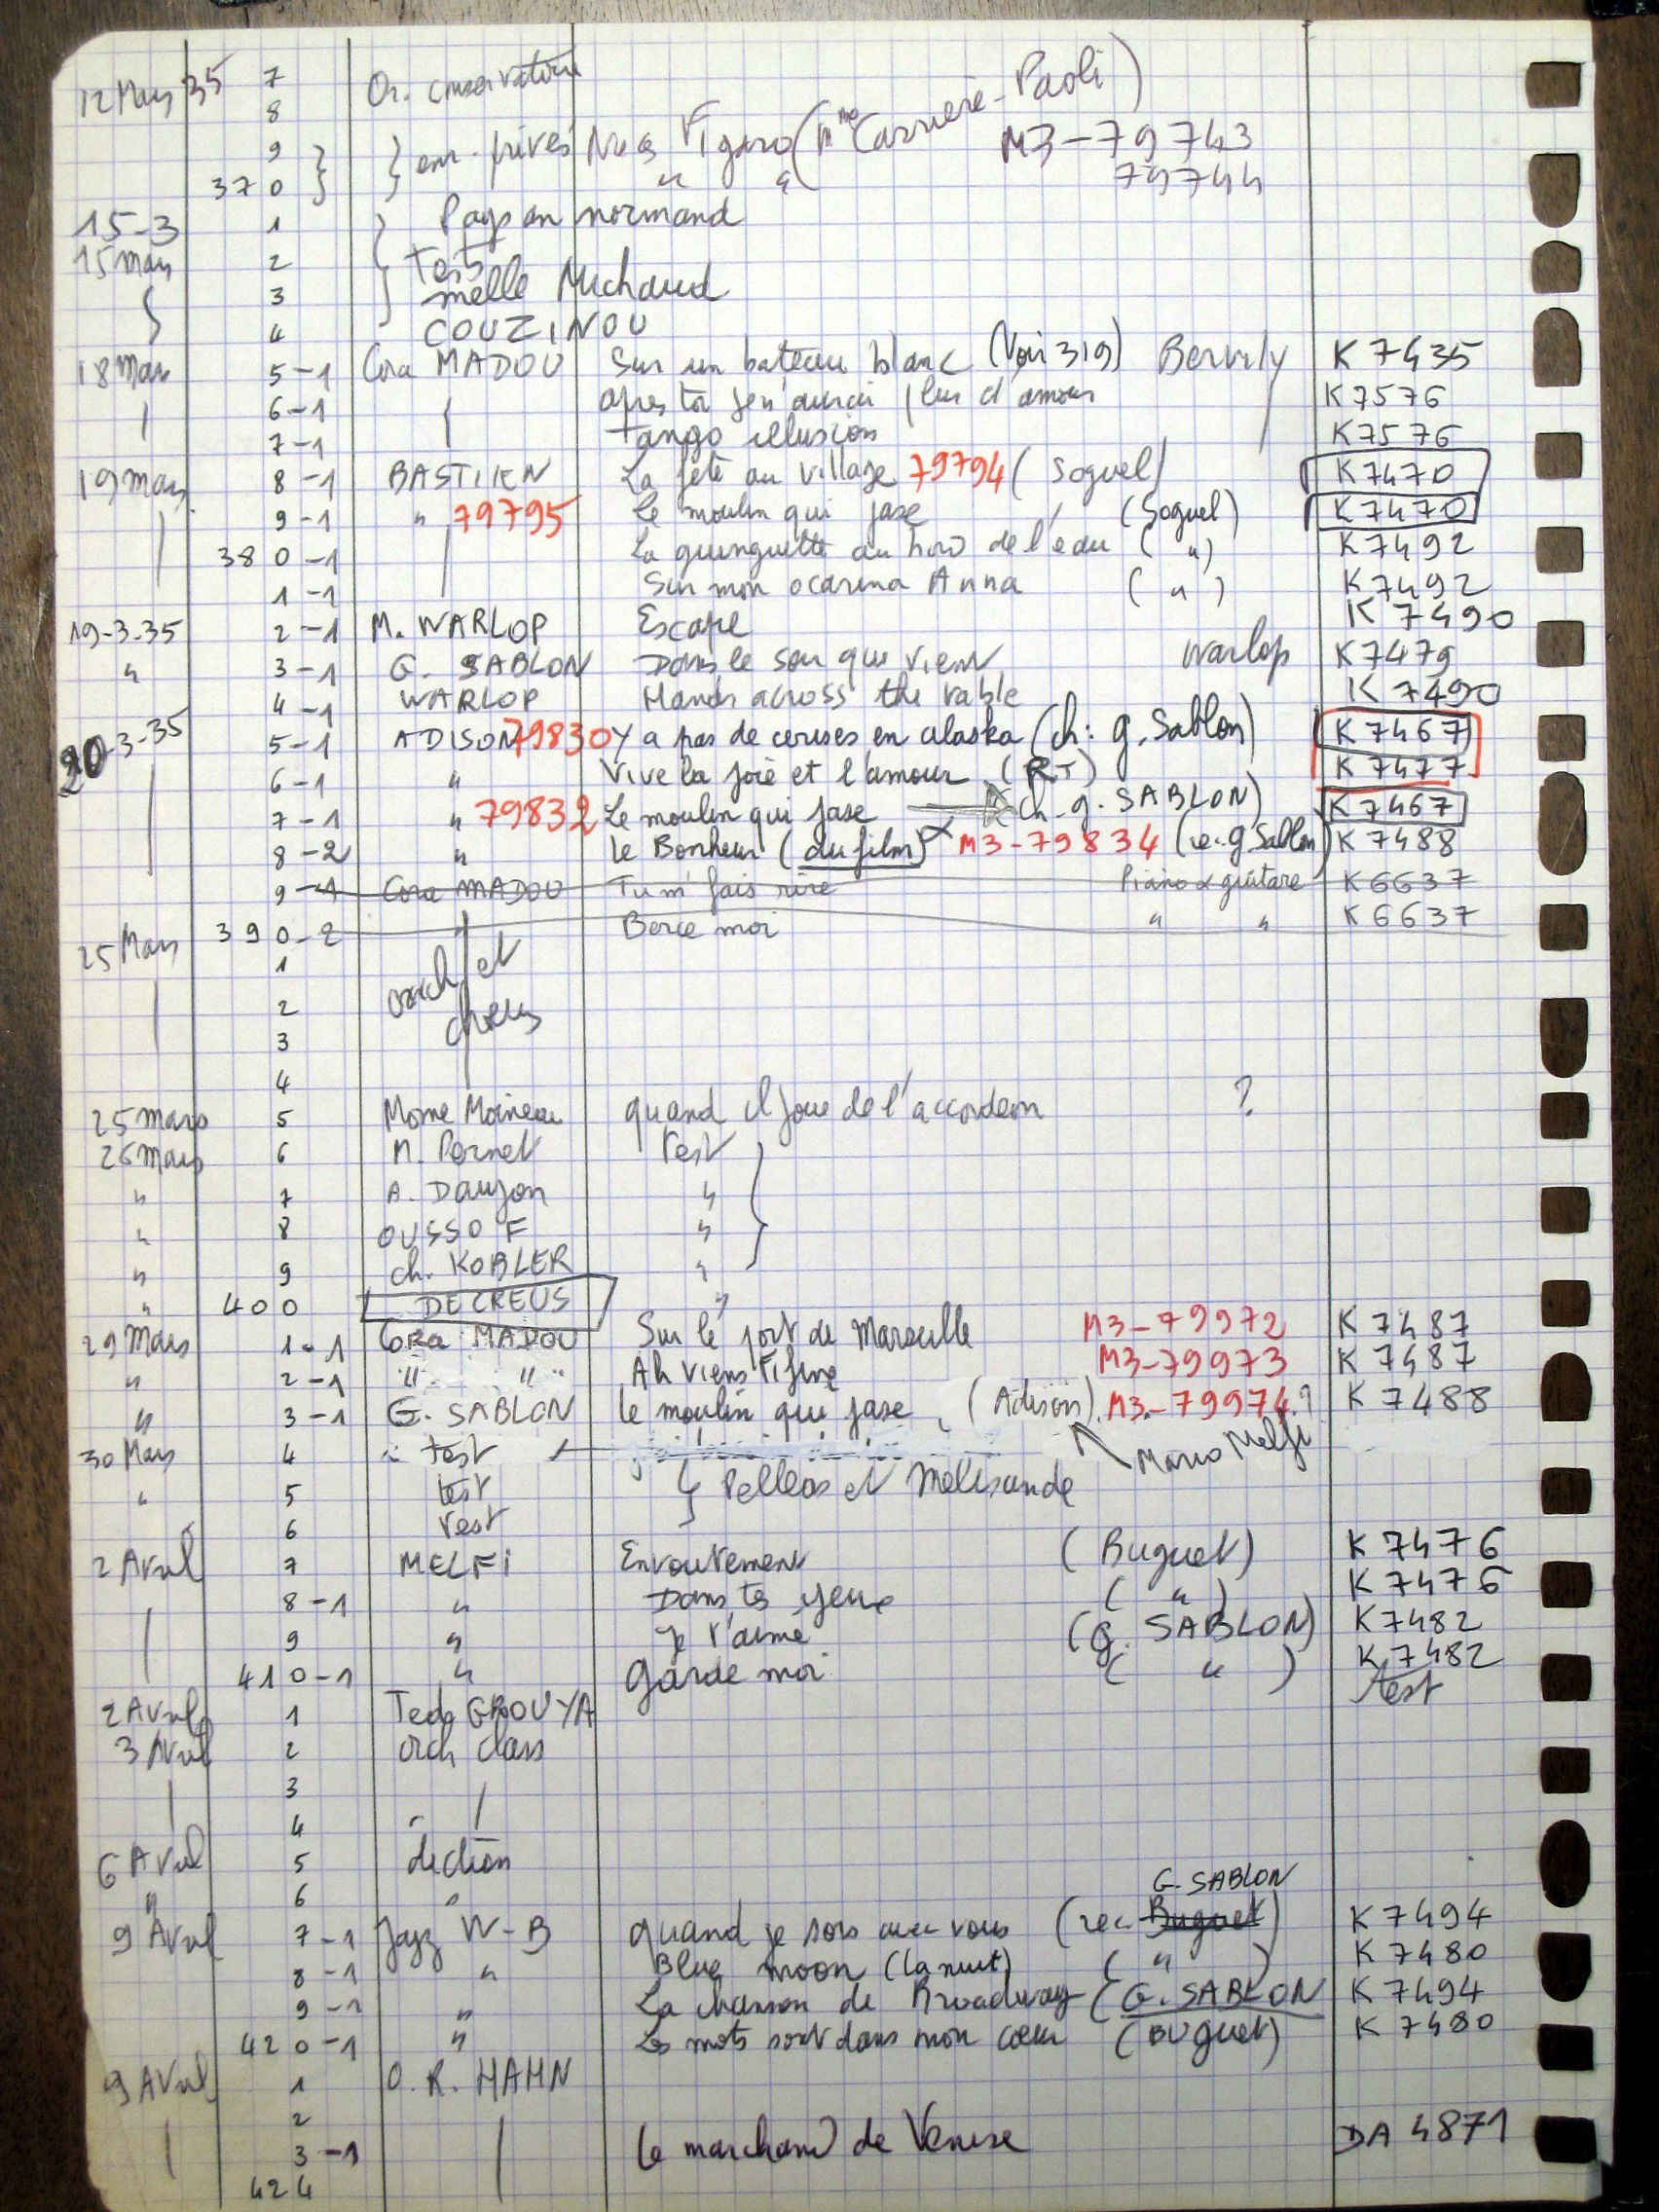 12 Mars 35 7 Or. conservatoire
8
9 } } enr. privés Nes Figaro (Mme Carrière-Paoli) M3-79743
370 " " 79744
15-3 1 Paysan normand
15 Mars 2 Tests
3 melle Michaud
4 COUZINOU
18 Mars 5-1 Cora MADOU Sur un bateau blanc (Voir 319) Bervily K 7435
6-1 après toi je n'aurai plus d'amour K7576
7-1 Tango illusion K7576
19 mars 8-1 BASTIEN La fête au village 79794 (Soguel) K7470
9-1 " 79795 Le moulin qui jase (Soguel) K7470
380-1 La guinguette au bord de l'eau ( " ) K7492
1-1 Sur mon ocarina Anna ( " ) K7492
19-3-35 2-1 M. WARLOP Escape K 7490
" 3-1 G. SABLON Dans le soir qui vient Warlop K7479
4-1 WARLOP Hands across the table K 7490
20-3-35 5-1 ADISON 79830 Y a pas de cerises en alaska (ch: g. Sablon) K 7467
6-1 " Vive la joie et l'amour (RT) K 7477
7-1 " 79832 Le moulin qui jase (ch. g. SABLON) K 7467
8-2 " Le Bonheur (du film) x M3-79834 (re. g. Sablon) K 7488
9-1 Cora MADOU Tu m'fais rire Piano & guitare K 6637
25 Mars 390-2 " Berce moi " " K 6637
1 orch et
2 chœurs
3
4
25 mars 5 Mome Moineau quand il joue de l'accordeon ?
26 mars 6 M. Pernet Test
" 7 A. Daujon "
" 8 OUSSOF "
" 9 ch. KOBLER "
" 400 DECREUS "
29 Mars 1-1 Cora MADOU Sur le port de Marseille M3-79972 K 7487
" 2-1 " " Ah viens Tifine M3-79973 K 7487
" 3-1 G. SABLON le moulin qui jase (Adison). M3-79974.? K 7488
30 Mars 4 " test Mario Melfi
" 5 test Pelleas et Melisande
6 test
2 Avril 7 MELFI Envoutement (Buguet) K 7476
8-1 " Dans tes yeux ( " ) K 7476
9 " Je t'aime (g. SABLON) K 7482
410-1 " Garde moi ( " ) K 7482
2 Avril 1 Tedy GROUYA test
3 Avril 2 orch class
3
4
6 Avril 5 diction
" 6 " G. SABLON
9 Avril 7-1 Jazz W-B quand je sors avec vous (re. Buguet) K 7494
8-1 " Blue moon (la nuit) ( " ) K 7480
9-1 " La chanson de Broadway (G. SABLON K 7494
420-1 " Les mots sont dans mon cœur (BUguet) K 7480
9 Avril 1 O. R. HAHN
2
3-1 Le marchand de Venise DA 4871
424